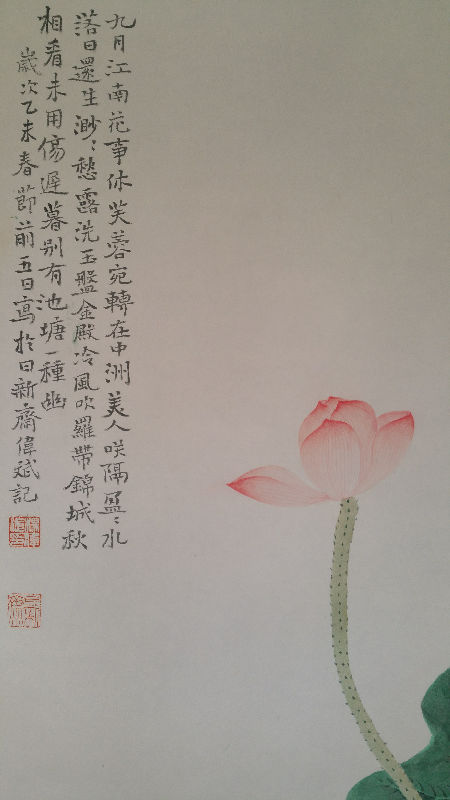 九月江南花事休芙蓉宛轉在中洲美人咲隔盈〻水
落日還生渺〻愁露洗玉盤金殿冷風吹羅帶錦城秋
相看未用傷遲暮別有池塘一種幽
歲次乙未春節前五日寫於日新齋偉斌記